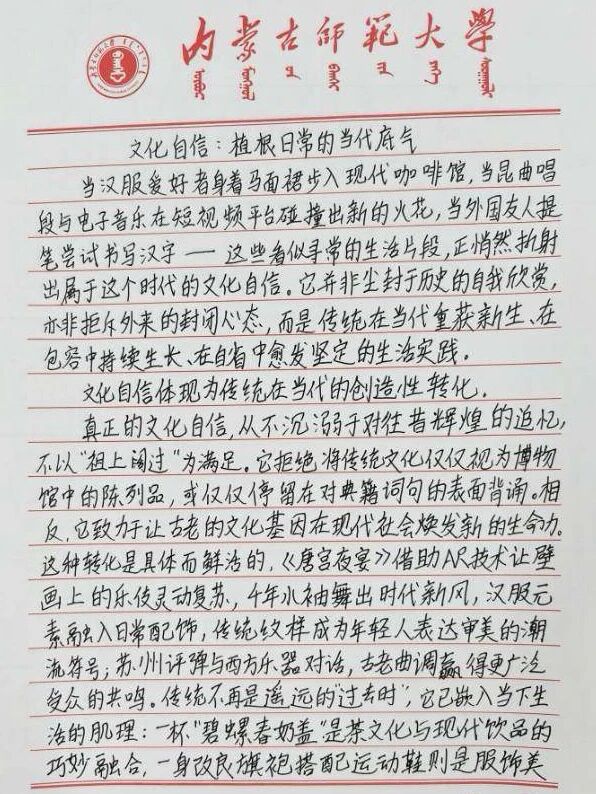 内蒙古师范大学
文化自信：植根日常的当代底气
当汉服爱好者身着马面裙步入现代咖啡馆，当昆曲唱
段与电子音乐在短视频平台碰撞出新的火花，当外国友人提
笔尝试书写汉字——这些看似寻常的生活片段，正悄然折射
出属于这个时代的文化自信。它并非尘封于历史的自我欣赏，
亦非拒斥外来的封闭心态，而是传统在当代重获新生、在
包容中持续生长、在自省中愈发坚定的生活实践。
文化自信体现为传统在当代的创造性转化。
真正的文化自信，从不沉溺于对往昔辉煌的追忆，
不以“祖上阔过”为满足。它拒绝将传统文化仅仅视为博物
馆中的陈列品，或仅仅停留在对典籍词句的表面背诵。相
反，它致力于让古老的文化基因在现代社会焕发新的生命力。
这种转化是具体而鲜活的，《唐宫夜宴》借助AR技术让壁
画上的乐伎灵动复苏，千年水袖舞出时代新风，汉服元
素融入日常配饰，传统纹样成为年轻人表达审美的潮
流符号；苏州评弹与西方乐器对话，古老曲调赢得更广泛
受众的共鸣。传统不再是遥远的“过去时”，它已嵌入当下生
活的肌理：一杯“碧螺春奶盖”是茶文化与现代饮品的
巧妙融合，一身改良旗袍搭配运动鞋则是服饰美